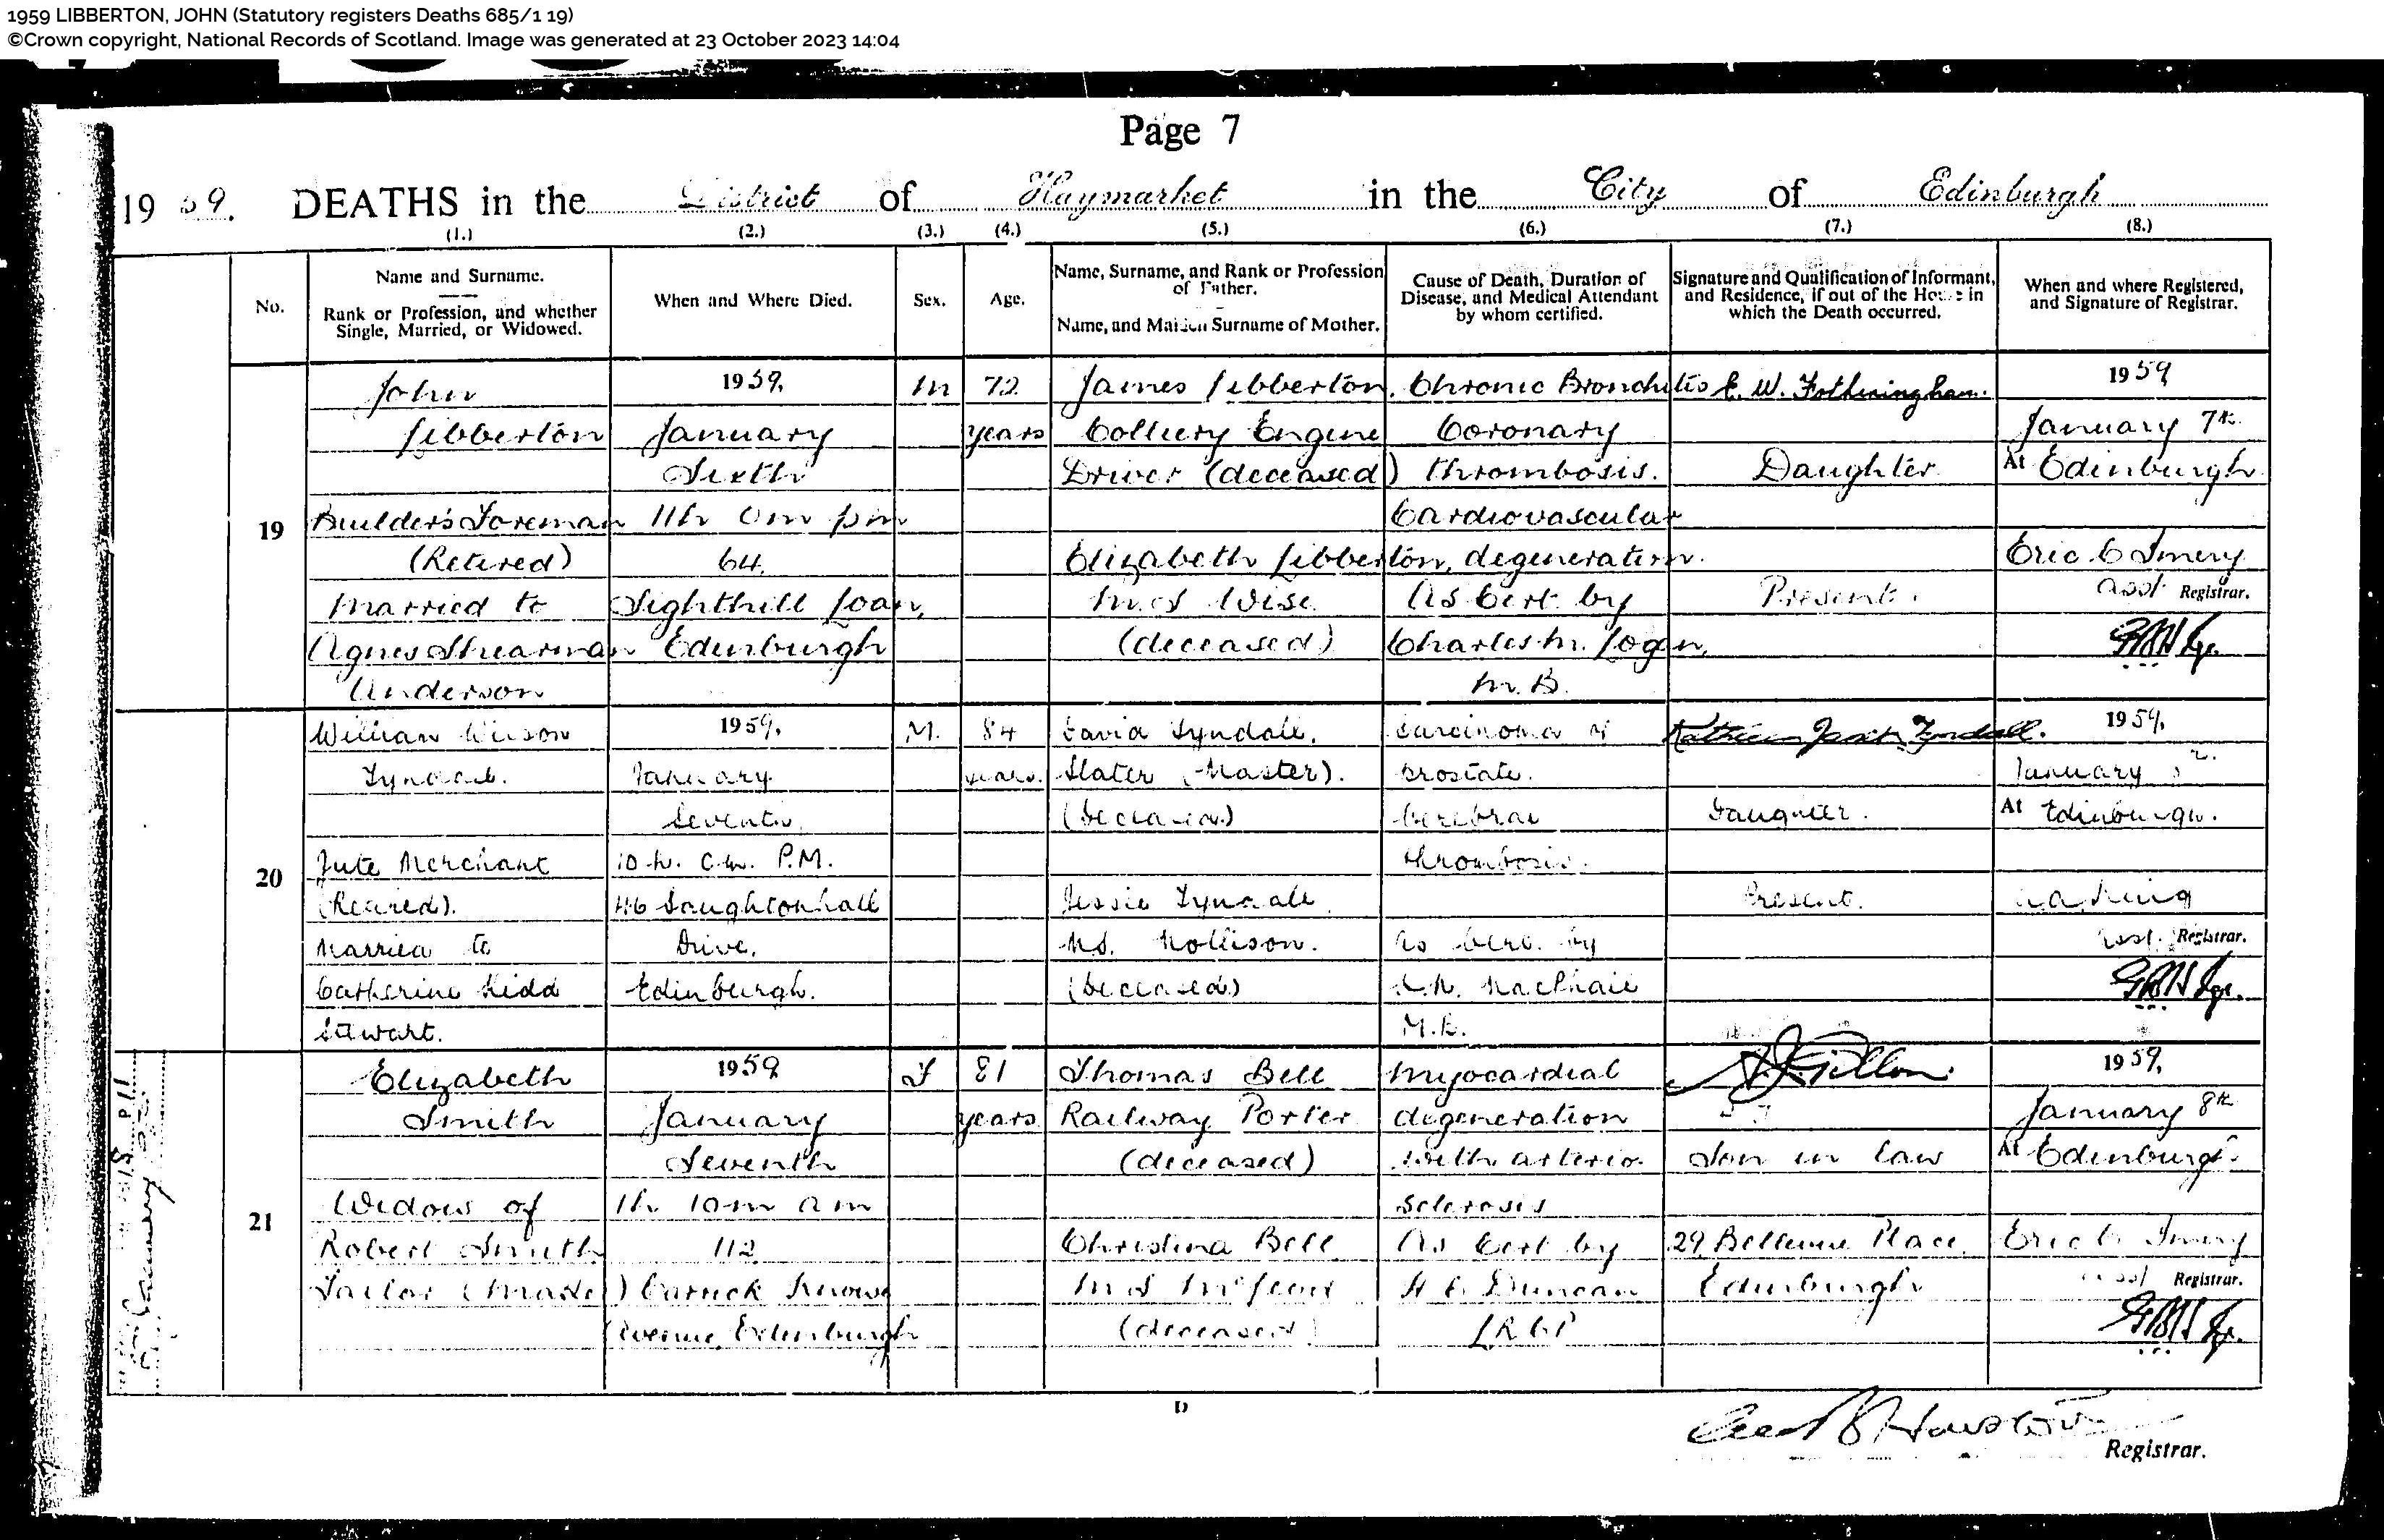 1959 LIBBERTON, JOHN (Statutory registers Deaths 685/1 19)
©Crown copyright, National Records of Scotland. Image was generated at 23 October 2023 14:04
Page 7
1959. DEATHS in the District of Haymarket in the City of Edinburgh
(1.) (2.) (3.) (4.) (5.) (6.) (7.) (8.)
No.
Name and Surname.
Rank or Profession, and whether
Single, Married, or Widowed.
When and Where Died.
Sex.
Age.
Name, Surname, and Rank or Profession
of Father.
Name, and Maiden Surname of Mother.
Cause of Death, Duration of
Disease, and Medical Attendant
by whom certified.
Signature and Qualification of Informant,
and Residence, if out of the House in
which the Death occurred.
When and where Registered,
and Signature of Registrar.
19
John
Libberton
Builder's Foreman
(Retired)
Married to
Agnes Shearman
Anderson
1959,
January
Sixth
11h 0m pm
64,
Sighthill Loan,
Edinburgh
M
72
years
James Libberton,
Colliery Engine
Driver (deceased)
Elizabeth Libberton,
M.S Wise
(deceased)
Chronic Bronchitis
Coronary
thrombosis.
Cardiovascular
degeneration.
As Cert by
Charles M. Logan,
M.B.
E. W. Fotheringham.
Daughter
Present.
1959
January 7th
At Edinburgh
Eric C Imery
asst Registrar.
20
William Wilson
Tyndall.
Jute Merchant
(Retired).
Married to
Catherine Kidd
Stewart.
1959,
January
Seventh
10 h. 0 m. P.M.
46 Saughtonhall
Drive,
Edinburgh.
M.
84
years.
David Tyndall,
Slater (Master).
(Deceased)
Jessie Tyndall
M.S. Mollison.
(Deceased)
Carcinoma of
prostate.
Cerebral
thrombosis.
As Cert. by
MacPhail
M.B.
Tyndall.
Daughter.
Present.
1959,
January
At Edinburgh.
asst. Registrar.
21
Elizabeth
Smith
Widow of
Robert Smith
Tailor (Master)
1959
January
Seventh
1h 10m am
112
Carrick Knowe
Avenue, Edinburgh
F
81
years
Thomas Bell
Railway Porter
(deceased)
Christina Bell
M S McLeod
(deceased)
Myocardial
degeneration
with arterio
sclerosis
As Cert by
Duncan
LRCP
Son in law
29 Bellevue Place,
Edinburgh
1959,
January 8th
At Edinburgh
Eric C Imery
asst Registrar.
D
Registrar.